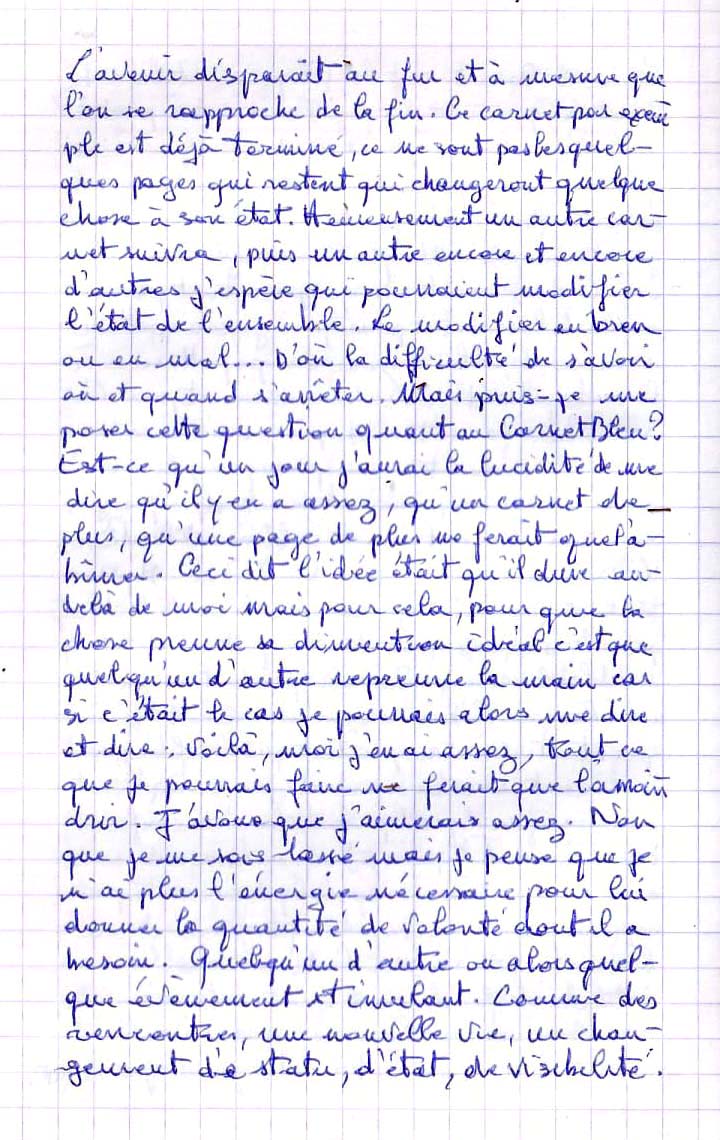 L'avenir disparait au fur et à mesure que
l'on se rapproche de la fin. Ce carnet par exem
ple est déjà terminé, ce ne sont pas les quel-
ques pages qui restent qui changeront quelque
chose à son état. Heureusement un autre car-
net suivra, puis un autre encore et encore
d'autres j'espère qui pourraient modifier
l'état de l'ensemble. Le modifier en bien
ou en mal... D'où la difficulté de savoir
où et quand s'arrêter. Mais puis-je me
poser cette question quant au Carnet Bleu?
Est-ce qu'un jour j'aurai la lucidité de me
dire qu'il y en a assez, qu'un carnet de
plus, qu'une page de plus ne ferait que l'a-
bîmer. Ceci dit l'idée était qu'il dure au-
delà de moi mais pour cela, pour que la
chose prenne sa dimention idéal c'est que
quelqu'un d'autre reprenne la main car
si c'était le cas je pourrais alors me dire
et dire: voilà, moi j'en ai assez, tout ce
que je pourrais faire ne ferait que l'amoin
drir. J'avoue que j'aimerais assez. Non
que je me sois lassé mais je pense que je
n'ai plus l'énergie nécessaire pour lui
donner la quantité de volonté dont il a
besoin. Quelqu'un d'autre ou alors quel-
que évènement stimulant. Comme des
rencontres, une nouvelle vie, un chan-
gement de statu, d'état, de visibilité.